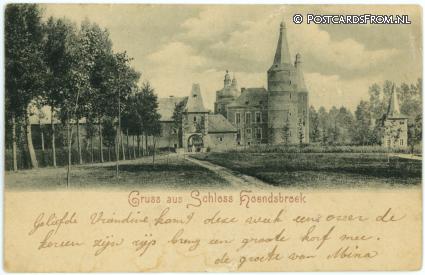 © PostcardsFrom.nl
Gruss aus Schloss Hoendsbroek
Geliefde Vriendine komt deze week eens over de
zijn zijp breng een groote korf mee.
de groete van Mina